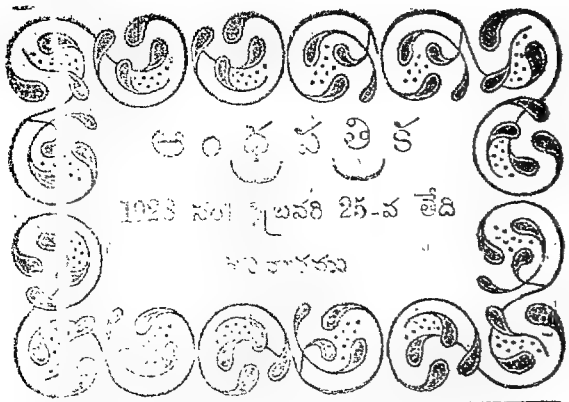 ఆంధ్రపత్రిక
1923 సం॥ ఫిబ్రవరి 25-వ తేది
ఆదివారము